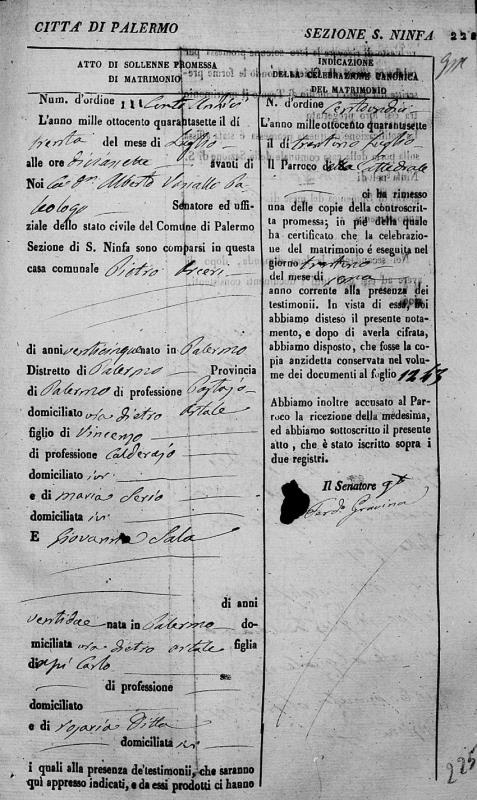 CITTA' DI PALERMO
SEZIONE S. NINFA
ATTO DI SOLLENNE PROMESSA
DI MATRIMONIO
Num. d'ordine
L'anno mille ottocento quarantasette il dì
trenta del mese di Luglio
alle ore avanti di
Noi Alberto
Senatore ed uffi-
ziale dello stato civile del Comune di Palermo
Sezione di S. Ninfa sono comparsi in questa
casa comunale Pietro
di anni venticinque nato in Palermo
Distretto di Palermo Provincia
di Palermo di professione
domiciliato via dietro
figlio di Vincenzo
di professione Calderajo
domiciliato ivi
e di Maria Serio
domiciliata ivi
E Giovanna Sala
di anni
ventidue nata in Palermo do-
miciliata via dietro figlia
di Carlo
di professione
domiciliato
e di Rosaria Ditta
domiciliata ivi
i quali alla presenza de'testimonii, che saranno
quì appresso indicati, e da essi prodotti ci hanno
INDICAZIONE
DELLA CELEBRAZIONE CANONICA
DEL MATRIMONIO
N. d'ordine
L'anno mille ottocento quarantasette
il dì trentuno Luglio
Il Parroco della Cattedrale
ci ha rimesso
una delle copie della controscrit-
ta promessa; in piè della quale
ha certificato che la celebrazione
del matrimonio è eseguita nel
giorno trentuno
del mese di
anno corrente alla presenza dei
testimonii. In vista di essa, noi
abbiamo disteso il presente no-
tamento, e dopo di averla cifrata,
abbiamo disposto, che fosse la co-
pia anzidetta conservata nel volu-
me dei documenti al foglio 1243
Abbiamo inoltre accusato al Par-
roco la ricezione della medesima,
ed abbiamo sottoscritto il presente
atto, che è stato iscritto sopra i
due registri.
Il Senatore
Gravina
225